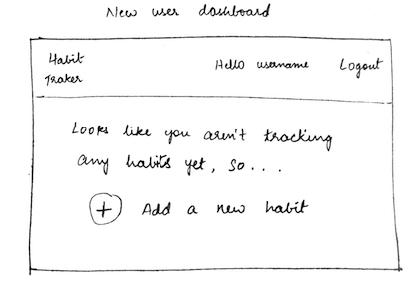 New user dashboard
Habit Hello username Logout
Traker
Looks like you aren't tracking
any habits yet, so...
+ Add a new habit